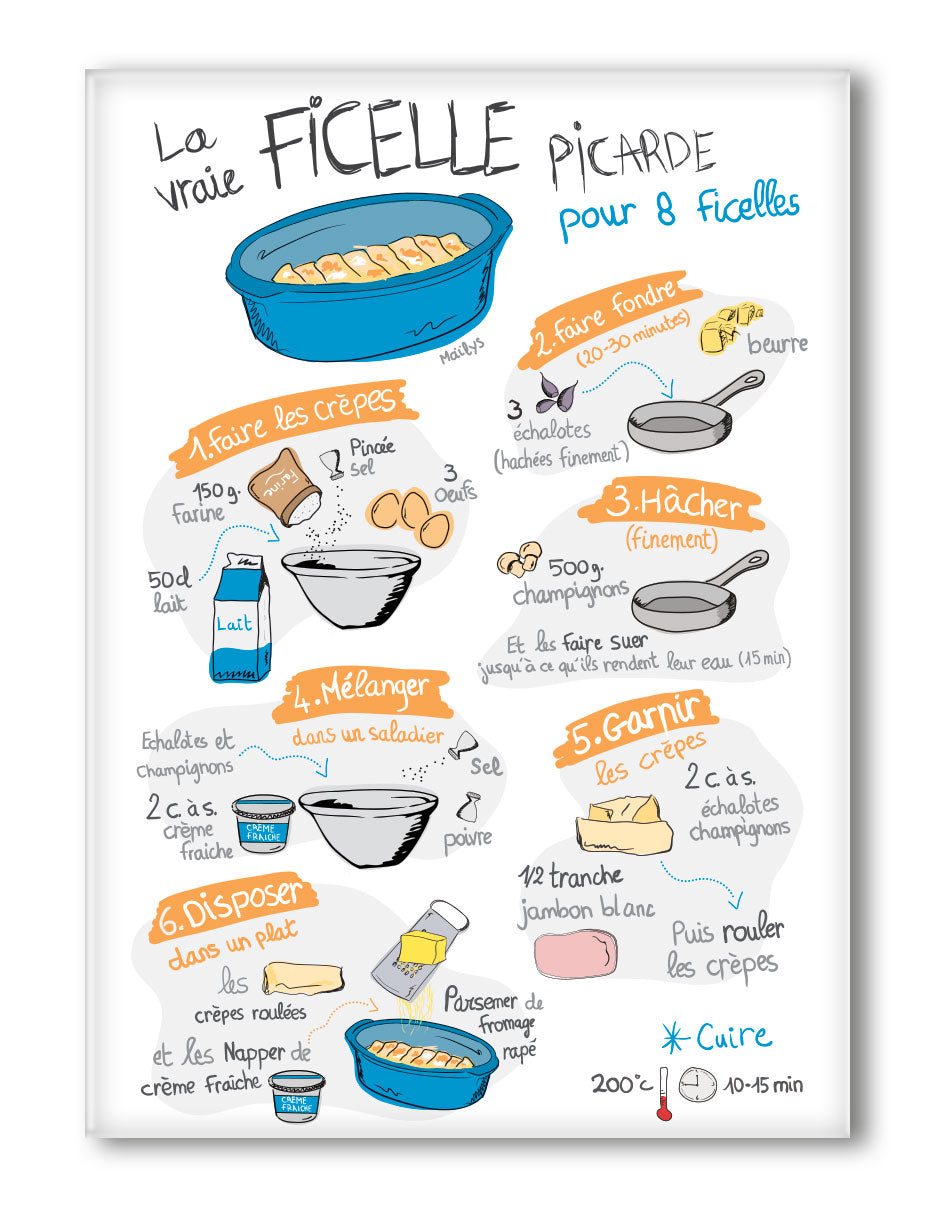 La
vraie
FICELLE
PICARDE
pour 8 ficelles
Maïlys
1. Faire les crêpes
150g.
farine
Farine
Pincée
sel
3
oeufs
50cl
lait
Lait
2. Faire fondre
(20-30 minutes)
beurre
3
échalotes
(hachées finement)
3. Hâcher
(finement)
500g.
champignons
Et les faire suer
jusqu'à ce qu'ils rendent leur eau (15 min)
4. Mélanger
dans un saladier
Echalotes et
champignons
sel
2 c. à s.
crème
fraiche
CRÈME
FRAICHE
poivre
5. Garnir
les crêpes
2 c. à s.
échalotes
champignons
1/2 tranche
jambon blanc
Puis rouler
les crêpes
6. Disposer
dans un plat
les
crêpes roulées
Parsemer de
fromage
rapé
et les Napper de
crème fraîche
CRÈME
FRAICHE
* Cuire
200°c
10-15 min